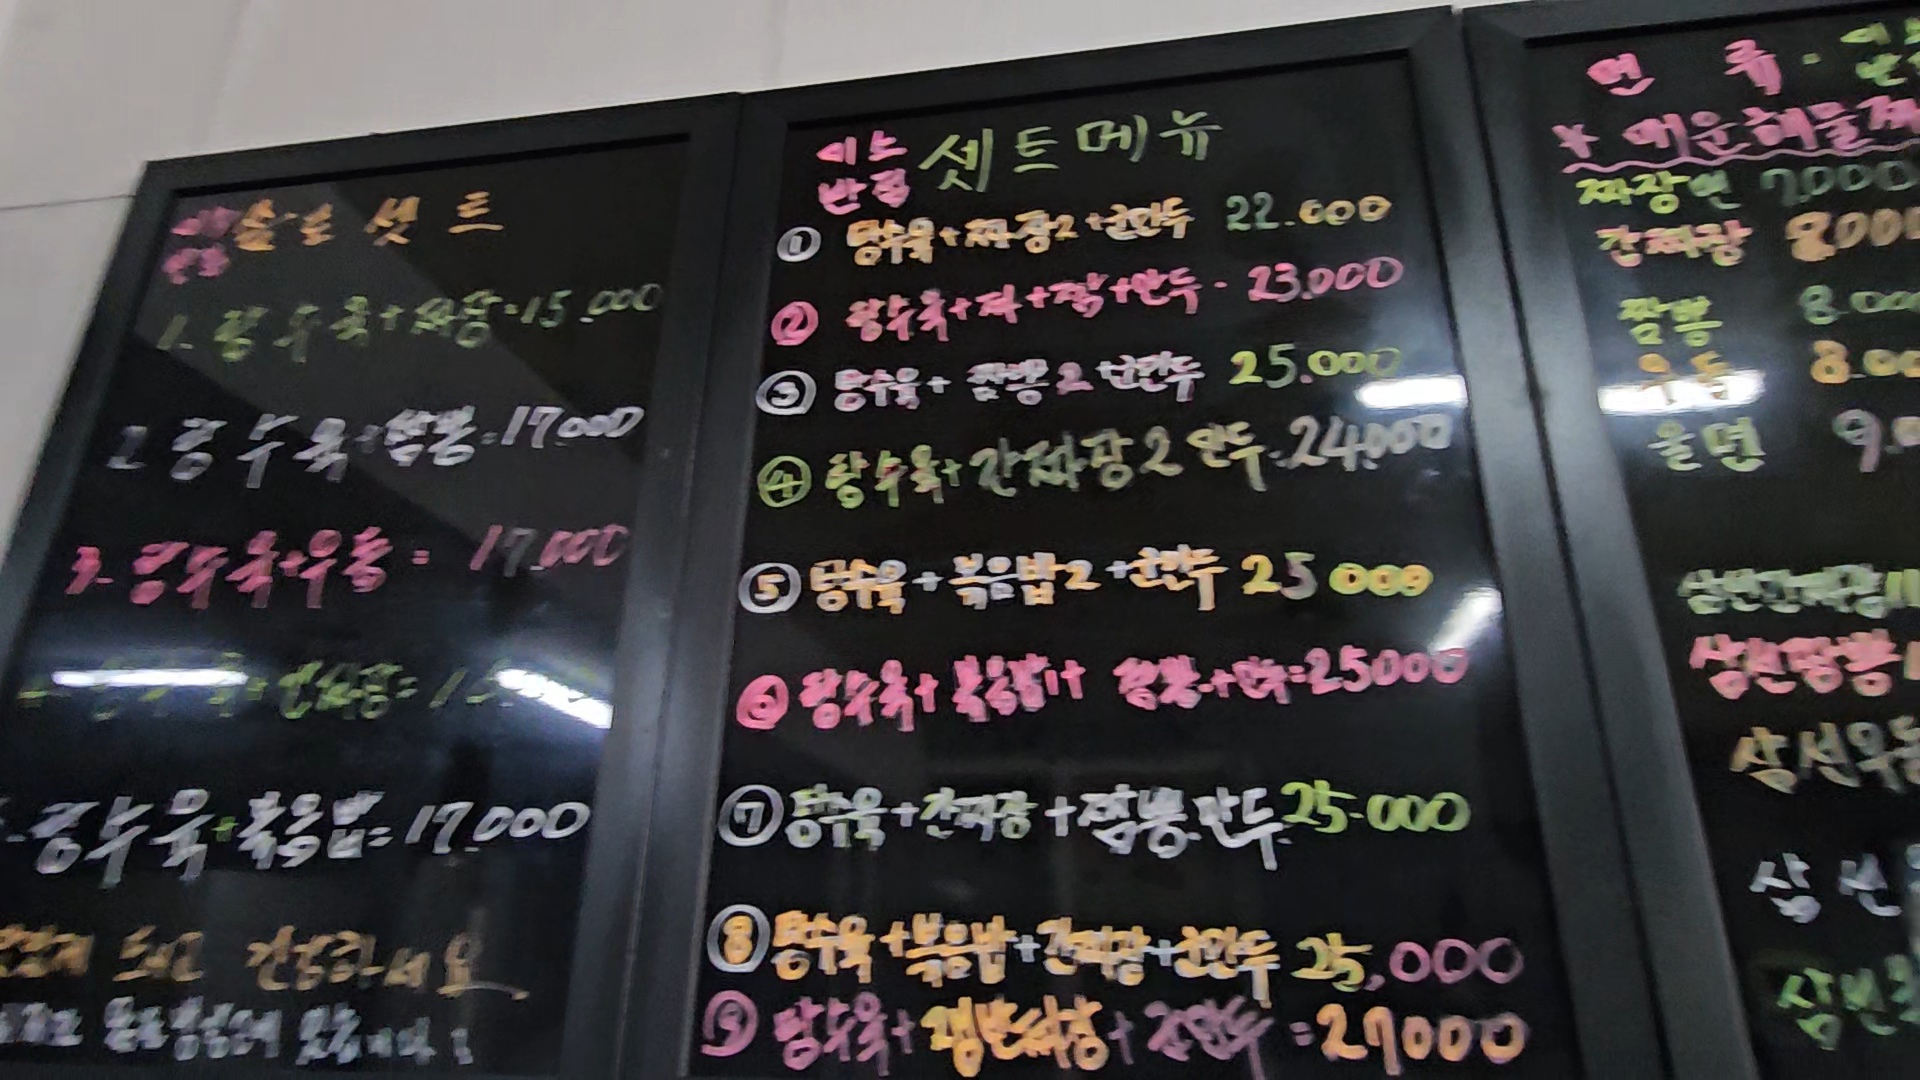 솔로 셋트
1. 탕수육+짜장=15.000
2. 탕수육+짬뽕=17.000
3. 탕수육+우동= 17.000
탕수육+간짜장=
탕수육+볶음밥=17.000
미노반점 셋트메뉴
① 탕수육+짜장2+군만두 22.000
② 탕수육+짜+짬+만두- 23.000
③ 탕수육+ 짬뽕2 군만두 25.000
④ 탕수육+간짜장2 만두=24.000
⑤ 탕수육+볶음밥2+군만두 25 000
⑥ 탕수육+볶음밥1+ 짬뽕+만두=25000
⑦ 탕수육+간짜장+짬뽕.만두 25-000
⑧ 탕수육+볶음밥+간짜장+군만두 25,000
⑨ 탕수육+쟁반짜장+군만두=27000
면 류.
* 매운해물짜
짜장면 7,000
간짜장 8,000
짬뽕 8.000
우동 8.00
울면 9.0
삼선간짜장11
삼선짬뽕1
삼선우동
삼선